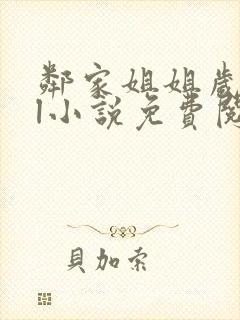 鄰家姐姐歲
1小說免費閱
貝加索